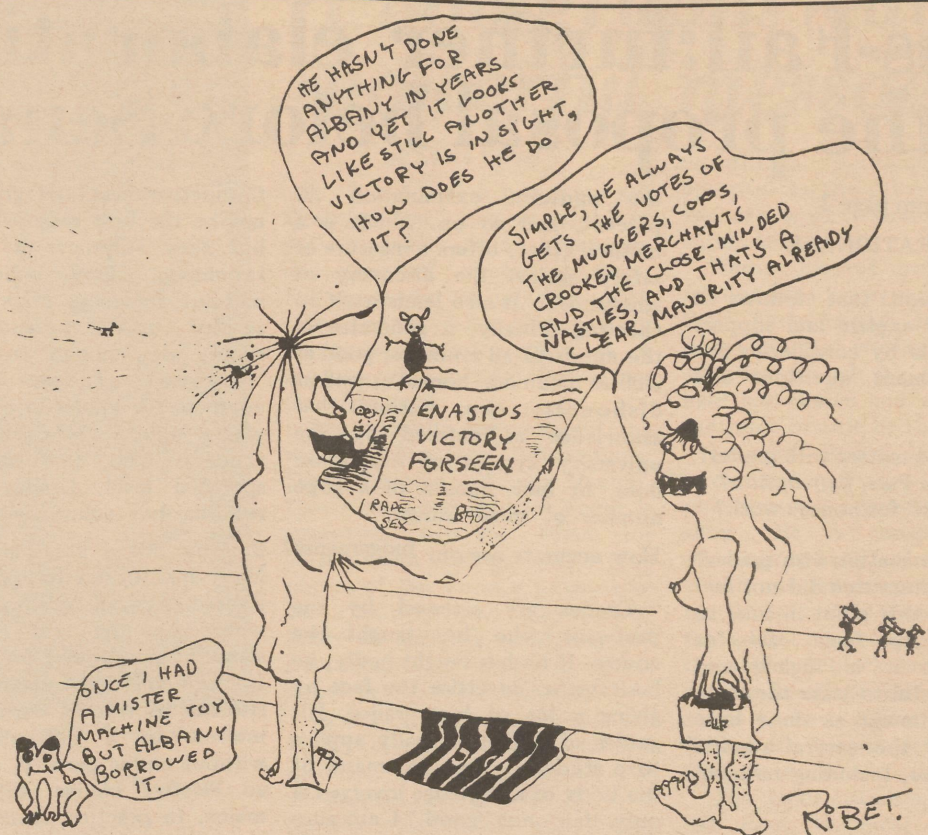 HE HASN'T DONE
ANYTHING FOR
ALBANY IN YEARS
AND YET IT LOOKS
LIKE STILL ANOTHER
VICTORY IS IN SIGHT,
HOW DOES HE DO
IT?
SIMPLE, HE ALWAYS
GETS THE VOTES OF
THE MUGGERS, COPS,
CROOKED MERCHANTS
AND THE CLOSE-MINDED
NASTIES, AND THAT'S A
CLEAR MAJORITY ALREADY
ENASTUS
VICTORY
FORSEEN
RAPE
SEX
BAD
ONCE I HAD
A MISTER
MACHINE TOY
BUT ALBANY
BORROWED
IT.
RIBET.